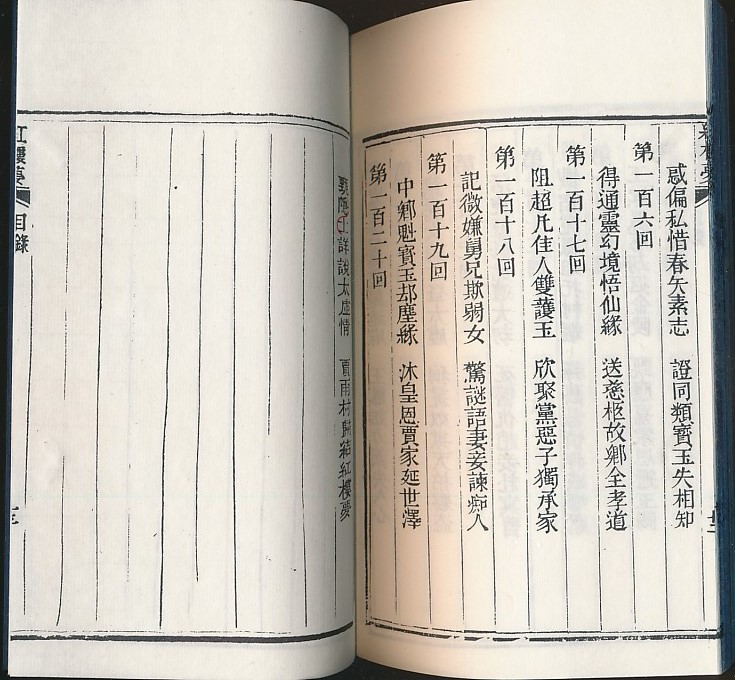 惑偏私惜春矢素志 證同類寶玉失相知
第一百六回
得通靈幻境悟仙緣 送慈柩故鄉全孝道
第一百十七回
阻超凡佳人雙護玉 欣聚黨惡子獨承家
第一百十八回
記微嫌舅兄欺弱女 驚謎語妻妾諫痴人
第一百十九回
中鄉魁寶玉却塵緣 沐皇恩賈家延世澤
第一百二十回
士詳說太虛情 賈雨村歸結紅樓夢
紅樓夢
目錄